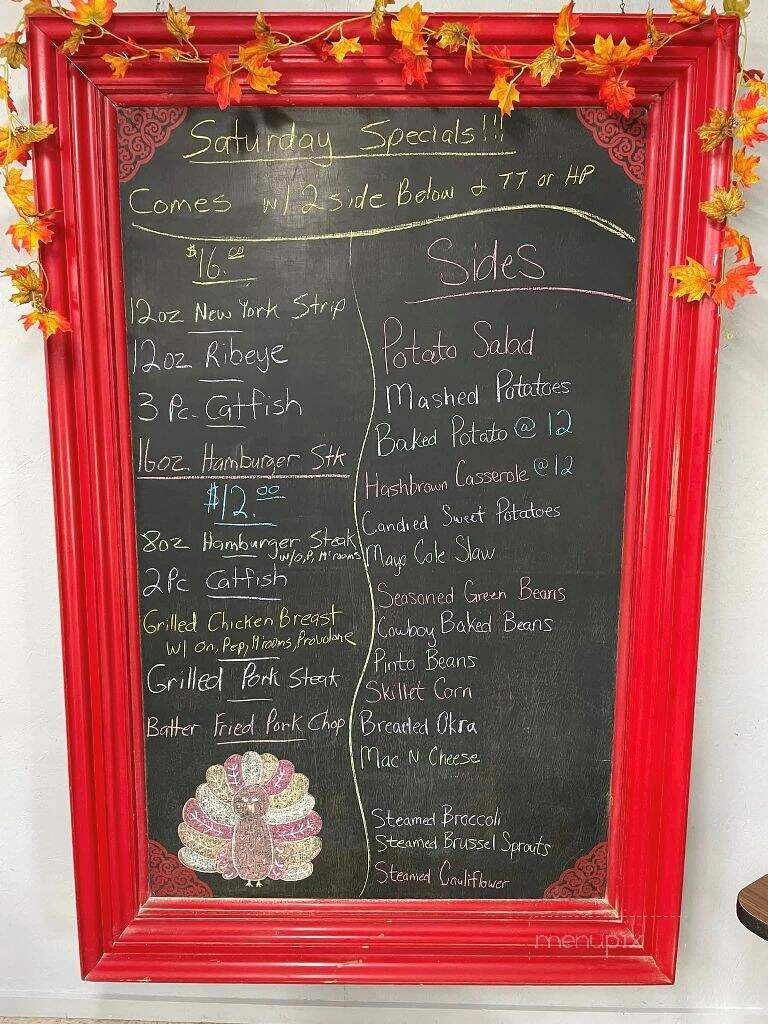 Saturday Specials!!!
Comes w/ 2 side Below & TT or HP
$16.00
12oz New York Strip
12oz Ribeye
3 Pc. Catfish
16oz. Hamburger Stk
$12.00
8oz Hamburger Steak
w/o,P, M'rooms
2Pc Catfish
Grilled Chicken Breast
w/ On, Pep, Mrooms, Provolone
Grilled Pork Steak
Batter Fried Pork Chop
Sides
Potato Salad
Mashed Potatoes
Baked Potato @ 12
Hashbrown Casserole @ 12
Candied Sweet Potatoes
Mayo Cole Slaw
Seasoned Green Beans
Cowboy Baked Beans
Pinto Beans
Skillet Corn
Breaded Okra
Mac N Cheese
Steamed Broccoli
Steamed Brussel Sprouts
Steamed Cauliflower
menupix